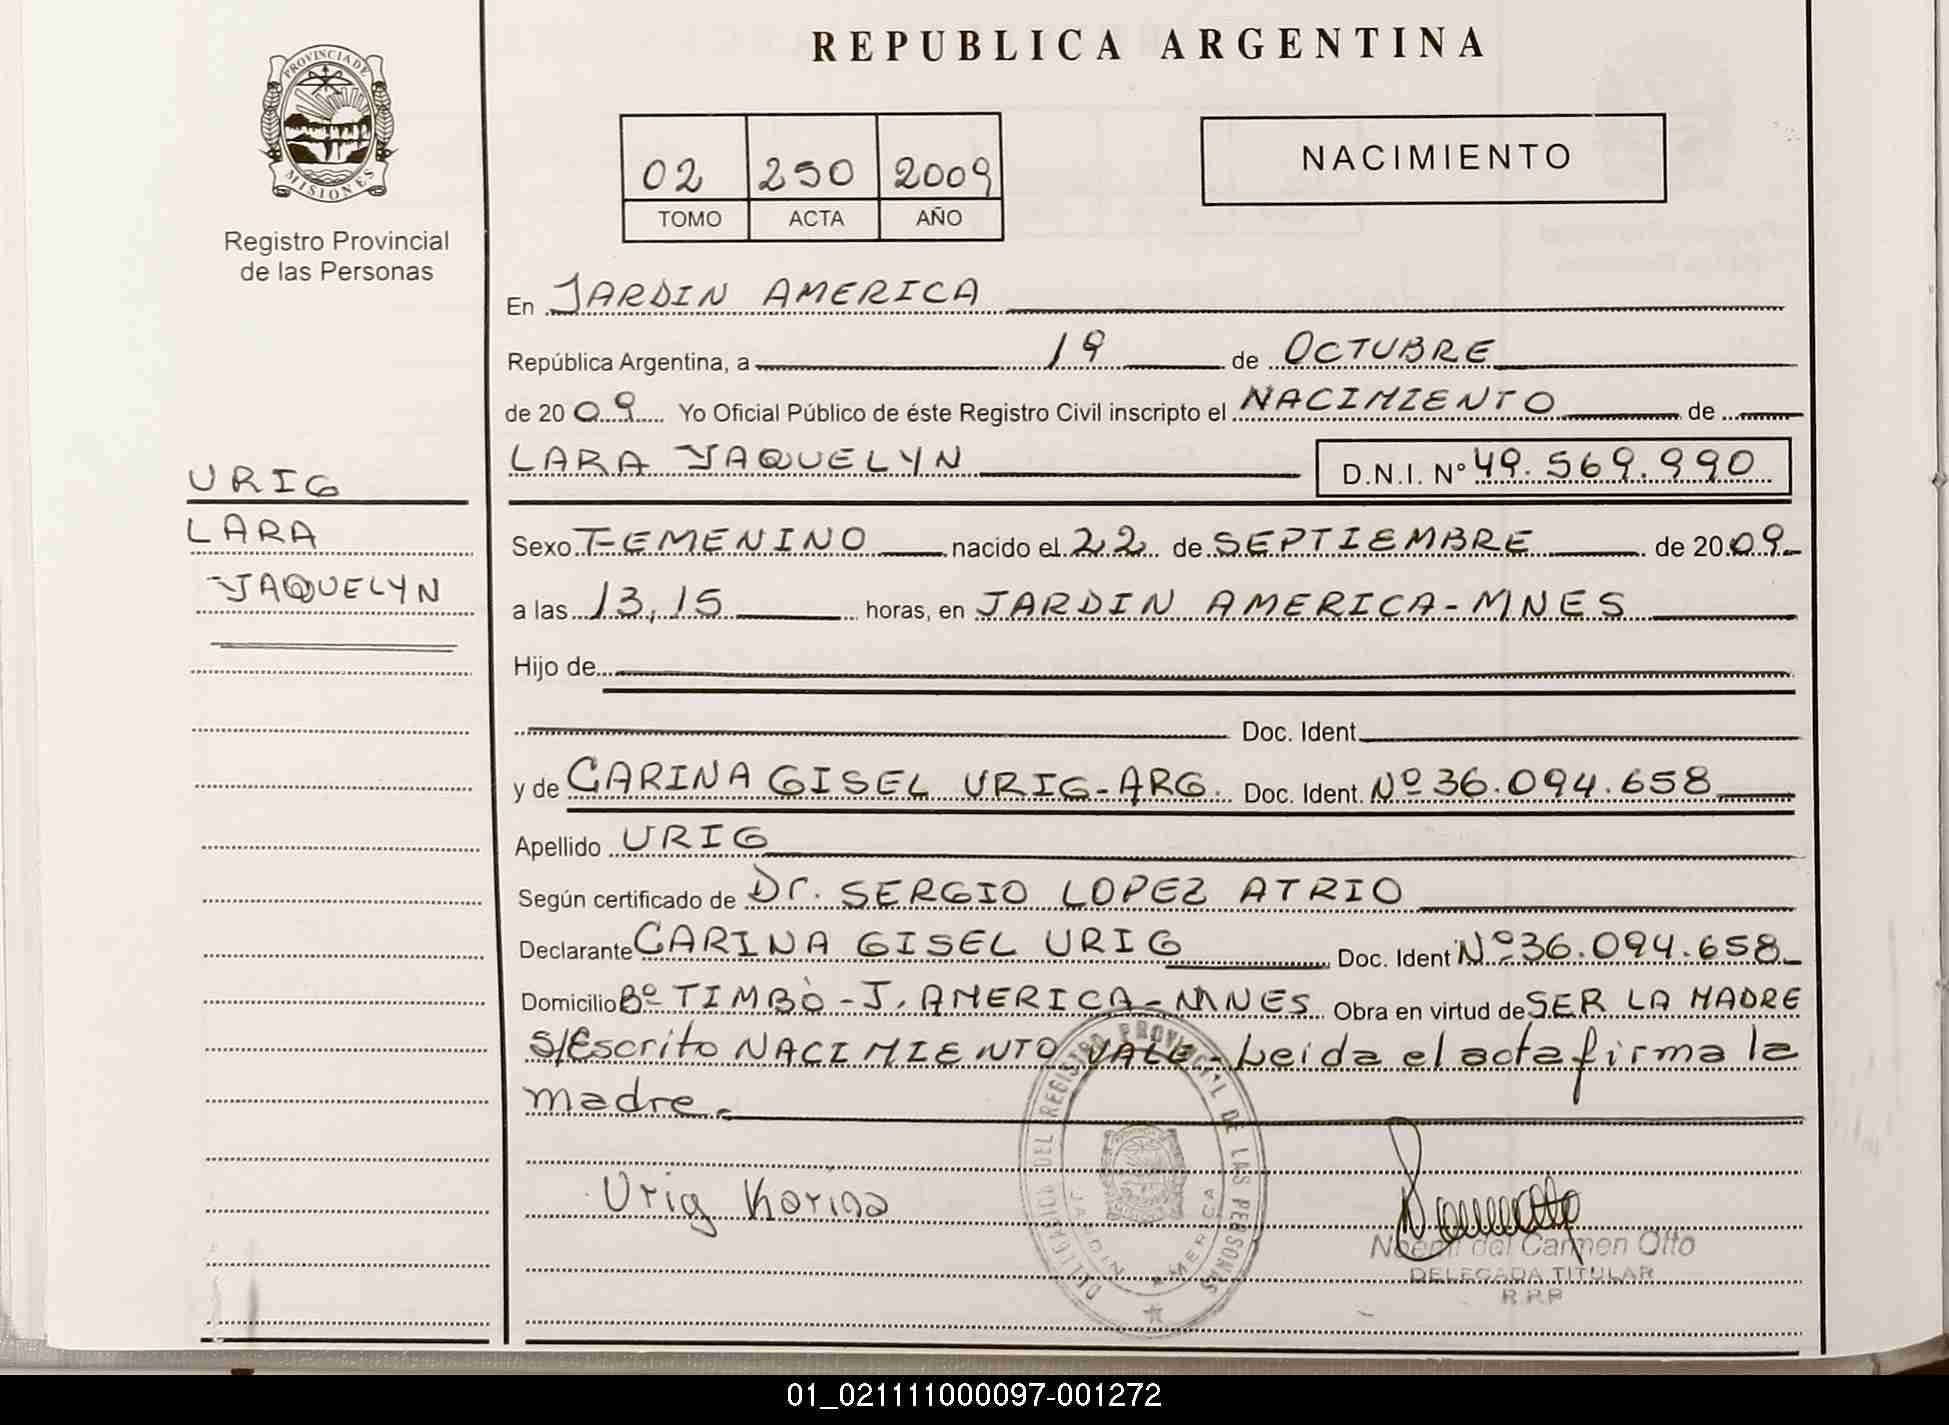 REPUBLICA ARGENTINA
PROVINCIA DE
MISIONES
Registro Provincial
de las Personas
02 250 2009
TOMO ACTA AÑO
NACIMIENTO
En JARDIN AMERICA
República Argentina, a 19 de OCTUBRE
de 2009 Yo Oficial Público de éste Registro Civil inscripto el NACIMIENTO de
LARA YAQUELYN D.N.I. Nº 49.569.990
URIG
LARA
YAQUELYN
Sexo FEMENINO nacido el 22 de SEPTIEMBRE de 2009
a las 13,15 horas, en JARDIN AMERICA-MNES
Hijo de
Doc. Ident.
y de CARINA GISEL URIG-ARG. Doc. Ident. Nº 36.094.658
Apellido URIG
Según certificado de Dr. SERGIO LOPEZ ATRIO
Declarante CARINA GISEL URIG Doc. Ident Nº 36.094.658
Domicilio Bº TIMBÒ - J. AMERICA - MNES Obra en virtud de SER LA MADRE
S/Escrito NACIMIENTO VALE - Leida el acta firma la
madre.
DELEGACIA DEL REGISTRO PROVINCIAL DE LAS PERSONAS
JARDIN AMERICA
Urig Karina
Noemi del Carmen Otto
DELEGADA TITULAR
R.P.P
01_021111000097-001272